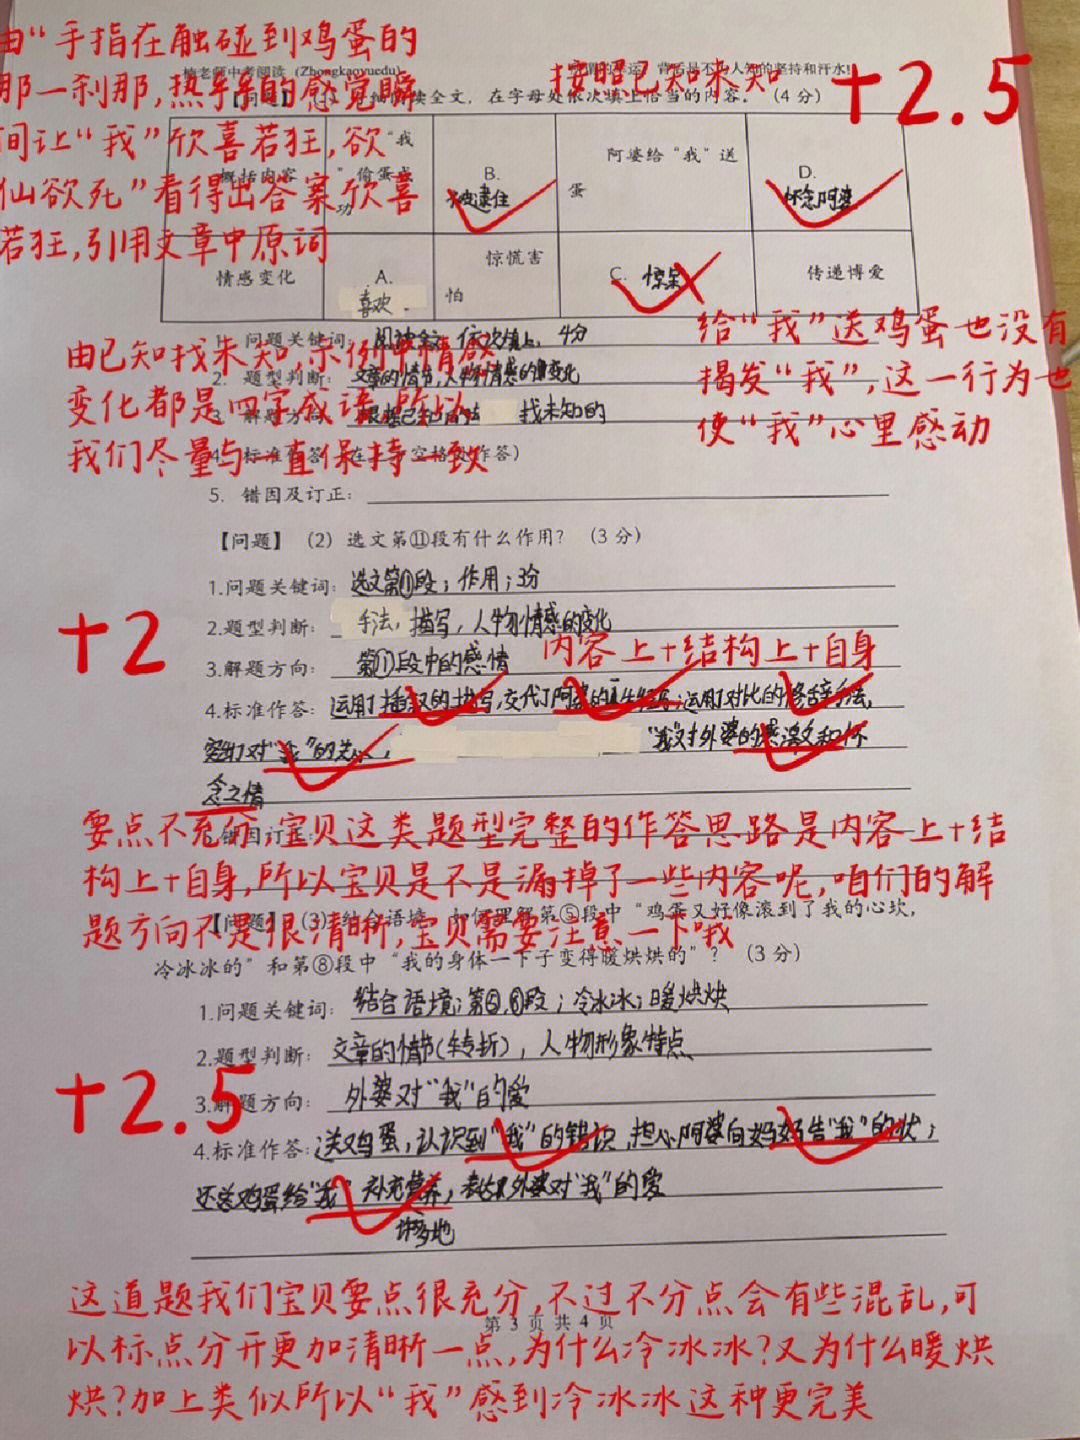 由“手指在触碰到鸡蛋的
那一刹那,热乎乎的感觉瞬
间让“我”欣喜若狂,欲
仙欲死”看得出答案欣喜
若狂,引用文章中原词
老师中考阅读 (Zhongkaoyuedu)
背后是不为人知的坚持和汗水!
按照已知求未知
+2.5
【问题】 (1) 读全文，在字母处依次填上恰当的内容。(4分)
概括内容
“我
”偷蛋成
功
B.
被逮住
阿婆给“我”送
蛋
D.
怀念阿婆
情感变化
A.
喜欢
惊慌害
怕
C. 惊呆
传递博爱
给“我”送鸡蛋也没有
揭发“我”,这一行为也
使“我”心里感动
1. 问题关键词: 阅读全文,依次填上,4分
2. 题型判断: 文章的情节,人物情感的变化
3. 解题方向: 找未知的
由已知找未知,示例中情感
变化都是四字成语,所以
我们尽量与一直保持一致
4. 标准作答
5. 错因及订正:
【问题】 (2) 选文第⑪段有什么作用? (3分)
1.问题关键词: 选文第⑪段;作用;3分
+2
2.题型判断: 手法,描写,人物情感的变化
3.解题方向: 第⑪段中的感情
内容上+结构上+自身
4.标准作答: 运用了插叙的描写,交代了阿婆的;运用对比的修辞手法,
对“我”的关心, “我”对外婆的感激和怀
念之情
错因订正:
要点不充分,宝贝这类题型完整的作答思路是内容上+结
构上+自身,所以宝贝是不是漏掉了一些内容呢,咱们的解
题方向不是很清晰,宝贝需要注意一下哦
【问题】 (3) 结合语境，如何理解第⑤段中“鸡蛋又好像滚到了我的心坎，
冷冰冰的”和第⑧段中“我的身体一下子变得暖烘烘的”? (3分)
1.问题关键词: 结合语境;第⑤,⑧段;冷冰冰;暖烘烘
2.题型判断: 文章的情节(转折),人物形象特点
+2.5
3.解题方向: 外婆对“我”的爱
4.标准作答: 送鸡蛋,认识到“我”的错误,担心阿婆向妈妈告“我”的状;
还送鸡蛋给“我”补充营养,表达了外婆对“我”的爱
第 3 页 共 4 页
这道题我们宝贝要点很充分,不过不分点会有些混乱,可
以标点分开更加清晰一点,为什么冷冰冰?又为什么暖烘
烘?加上类似所以“我”感到冷冰冰这种更完美